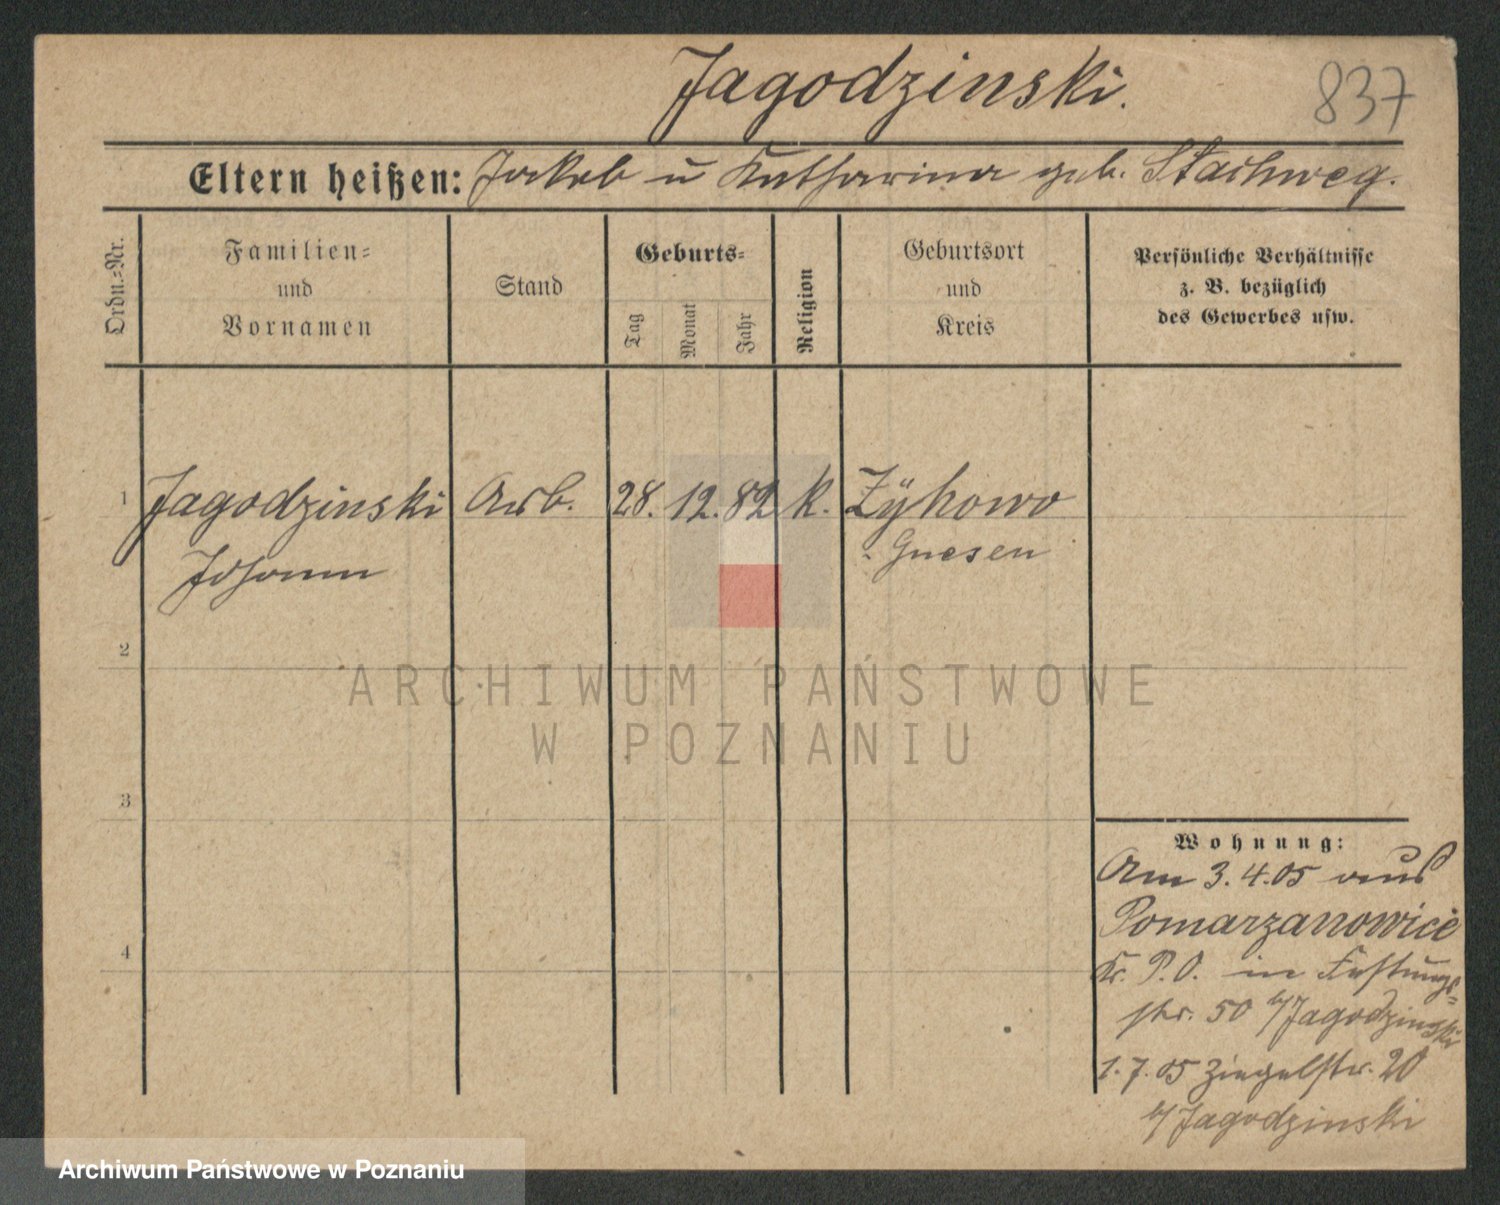 Jagodzinski.
837
Eltern heißen: Jakob u Katharina geb. Stachweg.
Ordn.=Nr.
Familien=
und
Vornamen
Stand
Geburts=
Tag
Monat
Jahr
Religion
Geburtsort
und
Kreis
Persönliche Verhältnisse
z. B. bezüglich
des Gewerbes usw.
1 Jagodzinski Arb. 28. 12. 82 k. Zÿkowo
Johann Gnesen
2
3
4
Wohnung:
Am 3.4.05 aus
Pomarzanowice
Kr. P.O. in Festungs=
str. 50 b/Jagodzinski
1.7.05 Ziegelstr. 20
b/Jagodzinski
ARCHIWUM PAŃSTWOWE
W POZNANIU
Archiwum Państwowe w Poznaniu